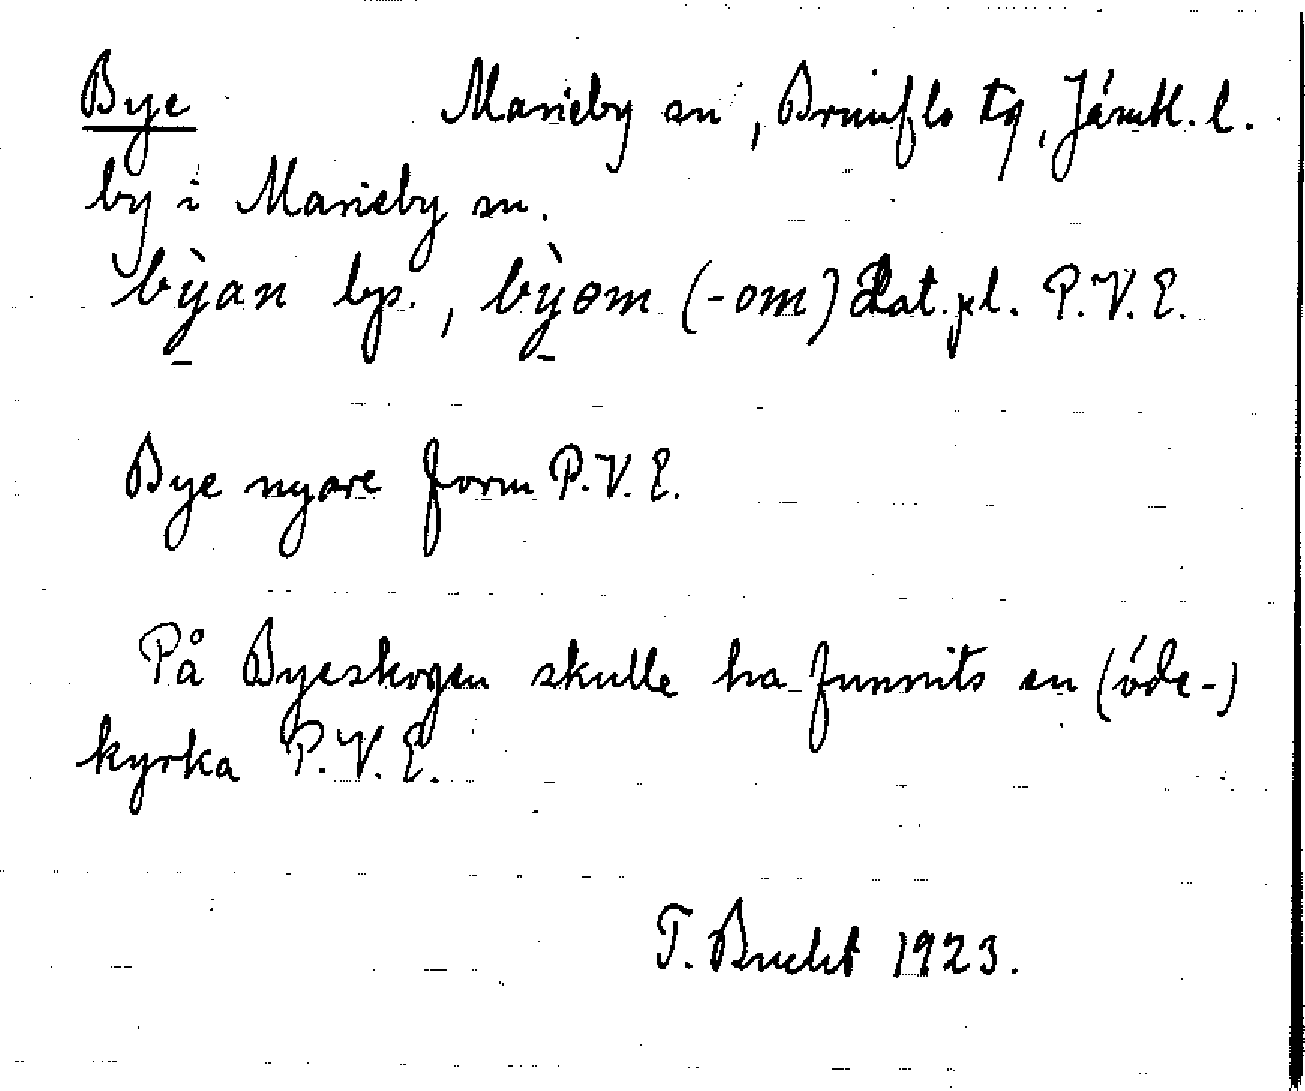 Bye Marieby sn, Brunflo tg, Jämtl. l.
by i Marieby sn.
bỳan bps., bỳøm (-om) Dat. pl. P.V.E.
Bye nyare form P.V.E.
På Byeskogen skulle ha funnits en (öde-)
kyrka P.V.E.
T. Bucht 1923.